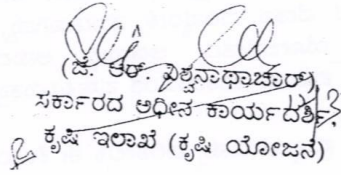 (ಜೆ. ಆರ್. ವಿಶ್ವನಾಥಾಚಾರ್)
ಸರ್ಕಾರದ ಅಧೀನ ಕಾರ್ಯದರ್ಶಿ
ಕೃಷಿ ಇಲಾಖೆ (ಕೃಷಿ ಯೋಜನೆ)